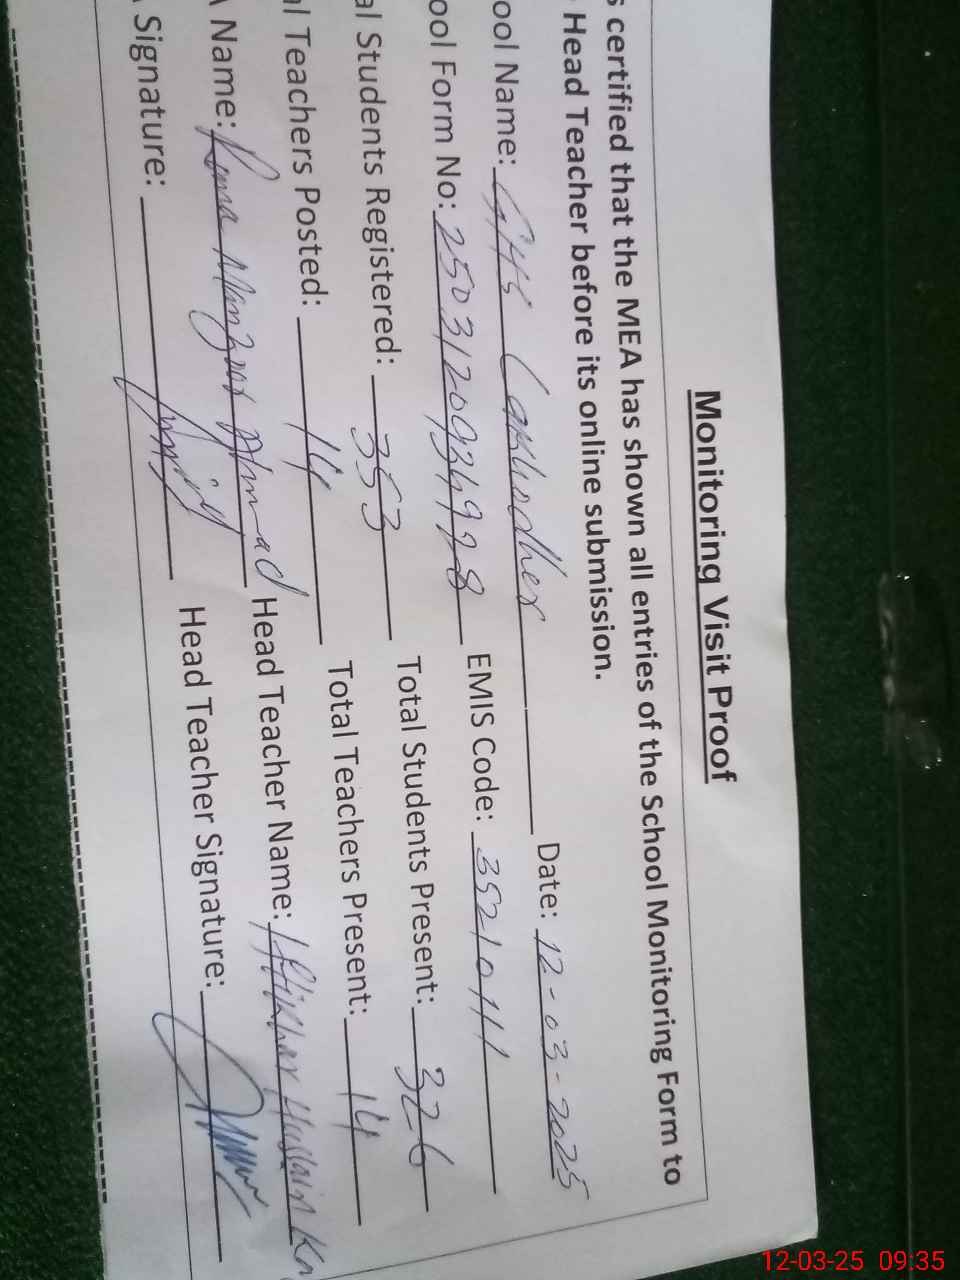 Monitoring Visit Proof
s certified that the MEA has shown all entries of the School Monitoring Form to
Head Teacher before its online submission.
ool Name: GHS Date: 12-03-2025
ool Form No: EMIS Code:
al Students Registered: 353 Total Students Present: 326
al Teachers Posted: 14 Total Teachers Present: 14
Name: Rana Manzoor Ahmad Head Teacher Name: Iftikhar Hussain
Signature: Head Teacher Signature:
12-03-25 09:35